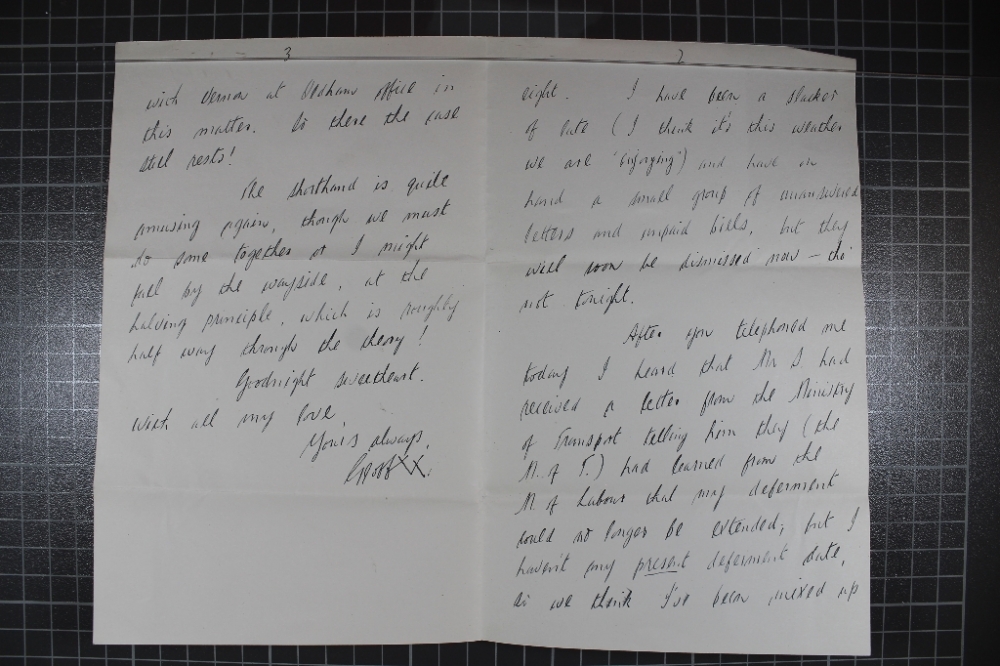 2
eight. I have been a slacker
of late (I think it's this weather
we are "enjoying") and have on
hand a small group of unanswered
letters and unpaid bills, but they
will soon be dismissed now – tho'
not tonight.
After you telephoned me
today I heard that Mr S. had
received a letter from the Ministry
of Transport telling him they (the
M. of T.) had learned from the
M. of Labour that my deferment
could no longer be extended; but I
haven't my present deferment date,
as we think I've been mixed up
3
with Vernon at Oldham office in
this matter. So there the case
still rests!
The shorthand is quite
amusing again, though we must
do some together or I might
fall by the wayside, at the
halving principle, which is roughly
half way through the theory!
Goodnight sweetheart.
With all my love,
Yours always,
Geoff XX.